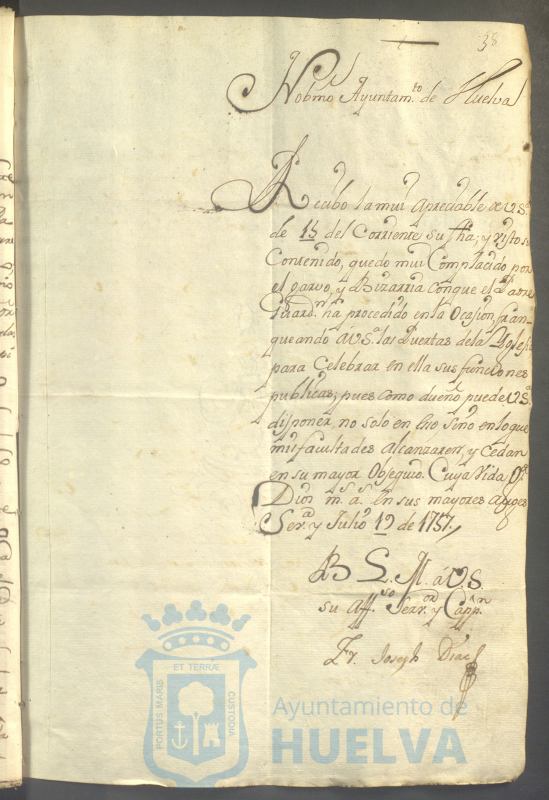 38
Nobmo Ayuntam.to de Huelva
Recibo la mui apreciable de VSa
de 15 del Corriente su fha; y visto su
Contenido, quedo mui Complacido por
el garvo, y Bizarria conque el Padre
Guardn. ha procedido en la Ocasion, fran-
queando á VSa. las Puertas dela Yglesia
para Celebrar en ella sus funciones
publicas; pues como dueño puede VSa.
disponer, no solo en Eso sino en lo que
mis facultades alcanzaren, y Cedan
en su mayor Obsequio. Cuya Vida ge
Dios ms. as. en sus mayores auges
Sera. y Julio 19 de 1757.
B L M. á VS
su affso. Serror. y Cappn.
Fr. Joseph Diaz
ET TERRÆ
PORTUS MARIS
CUSTODIA
Ayuntamiento de
HUELVA